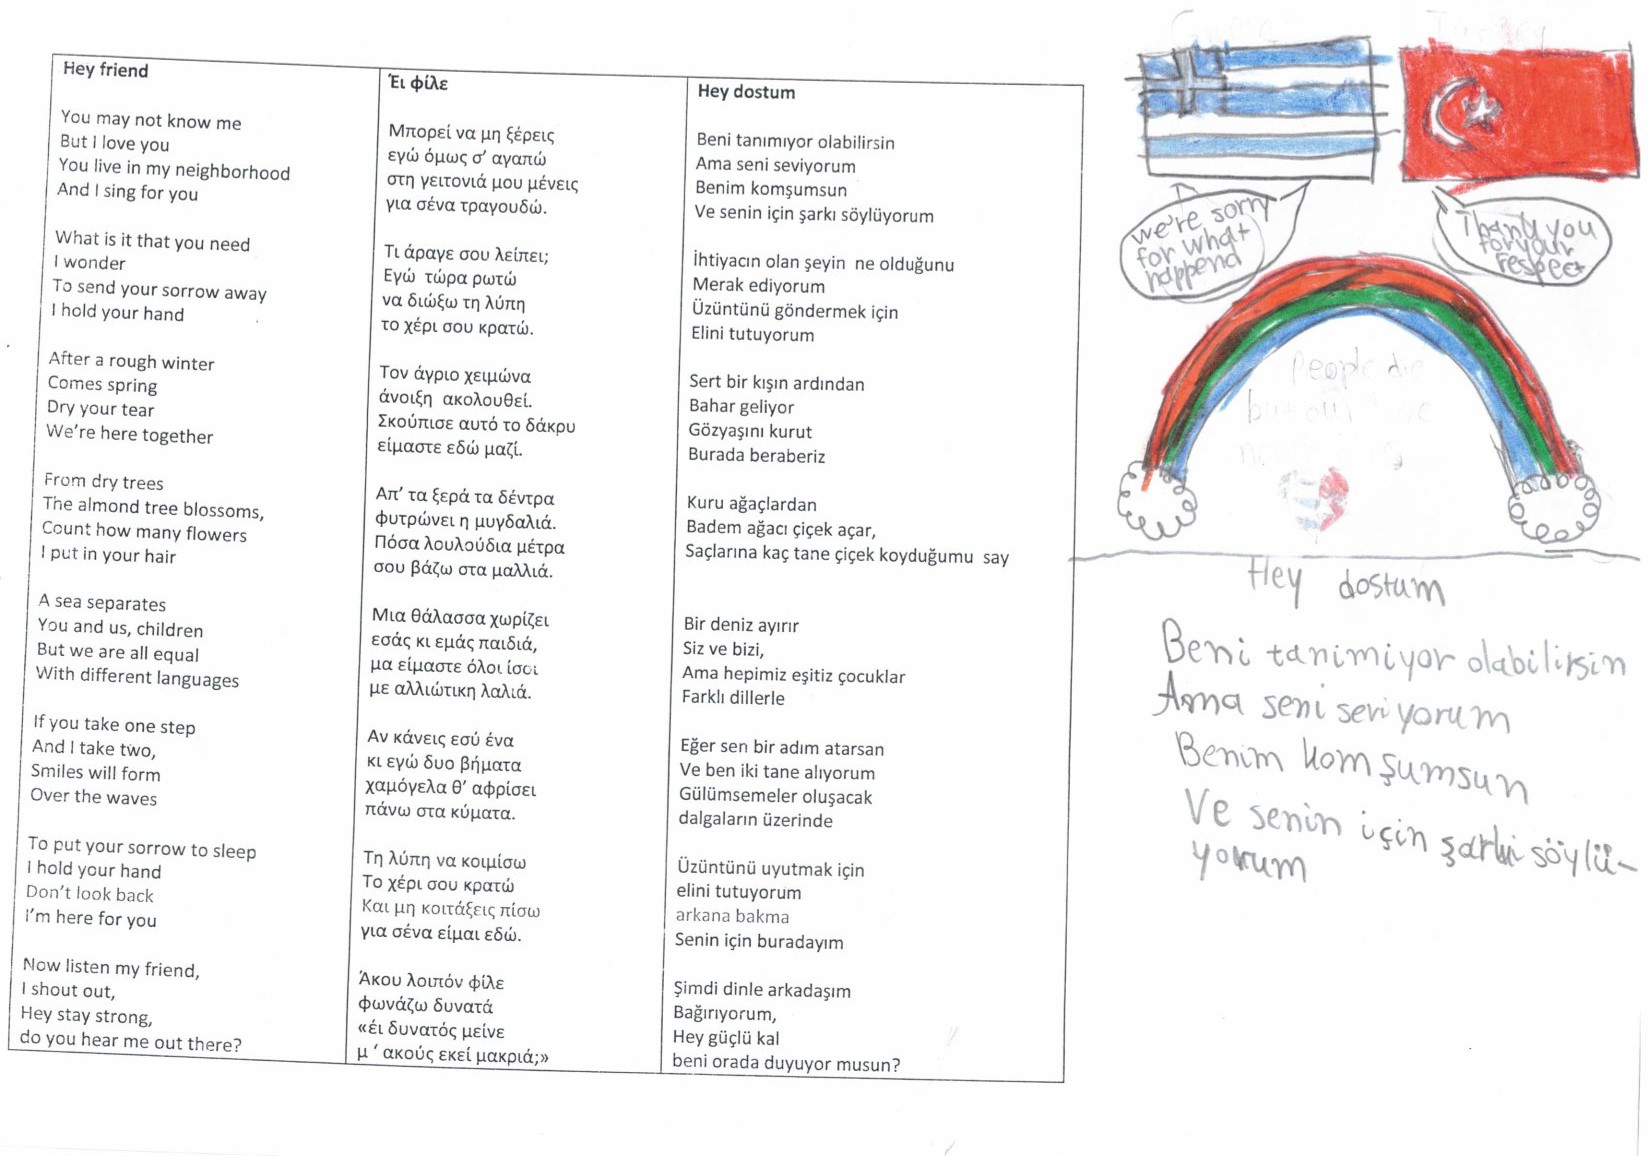 Hey friend
You may not know me
But I love you
You live in my neighborhood
And I sing for you
What is it that you need
I wonder
To send your sorrow away
I hold your hand
After a rough winter
Comes spring
Dry your tear
We're here together
From dry trees
The almond tree blossoms,
Count how many flowers
I put in your hair
A sea separates
You and us, children
But we are all equal
With different languages
If you take one step
And I take two,
Smiles will form
Over the waves
To put your sorrow to sleep
I hold your hand
Don't look back
I'm here for you
Now listen my friend,
I shout out,
Hey stay strong,
do you hear me out there?
Έι φίλε
Μπορεί να μη ξέρεις
εγώ όμως σ' αγαπώ
στη γειτονιά μου μένεις
για σένα τραγουδώ.
Τι άραγε σου λείπει;
Εγώ τώρα ρωτώ
να διώξω τη λύπη
το χέρι σου κρατώ.
Τον άγριο χειμώνα
άνοιξη ακολουθεί.
Σκούπισε αυτό το δάκρυ
είμαστε εδώ μαζί.
Απ' τα ξερά τα δέντρα
φυτρώνει η μυγδαλιά.
Πόσα λουλούδια μέτρα
σου βάζω στα μαλλιά.
Μια θάλασσα χωρίζει
εσάς κι εμάς παιδιά,
μα είμαστε όλοι ίσοι
με αλλιώτικη λαλιά.
Αν κάνεις εσύ ένα
κι εγώ δυο βήματα
χαμόγελα θ' αφρίσει
πάνω στα κύματα.
Τη λύπη να κοιμίσω
Το χέρι σου κρατώ
Και μη κοιτάξεις πίσω
για σένα είμαι εδώ.
Άκου λοιπόν φίλε
φωνάζω δυνατά
«έι δυνατός μείνε
μ ' ακούς εκεί μακριά;»
Hey dostum
Beni tanımıyor olabilirsin
Ama seni seviyorum
Benim komşumsun
Ve senin için şarkı söylüyorum
İhtiyacın olan şeyin ne olduğunu
Merak ediyorum
Üzüntünü göndermek için
Elini tutuyorum
Sert bir kışın ardından
Bahar geliyor
Gözyaşını kurut
Burada beraberiz
Kuru ağaçlardan
Badem ağacı çiçek açar,
Saçlarına kaç tane çiçek koyduğumu say
Bir deniz ayırır
Siz ve bizi,
Ama hepimiz eşitiz çocuklar
Farklı dillerle
Eğer sen bir adım atarsan
Ve ben iki tane alıyorum
Gülümsemeler oluşacak
dalgaların üzerinde
Üzüntünü uyutmak için
elini tutuyorum
arkana bakma
Senin için buradayım
Şimdi dinle arkadaşım
Bağırıyorum,
Hey güçlü kal
beni orada duyuyor musun?
we're sorry
for what
happend
Thank you
for your
respect
People die
but our
Hey dostum
Beni tanimiyor olabilirsin
Ama seni seviyorum
Benim komşumsun
Ve senin için şarki söylü-
yorum